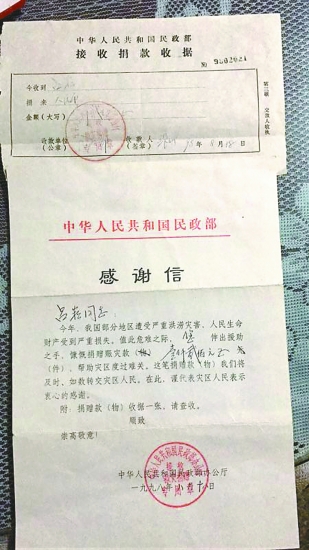 中华人民共和国民政部
接收捐款收据
№ 9602024
今收到
捐来
金额（大写）
收款单位 收款人
（公章） （签章） 年 月 18 日
第三联 交款人收执
中华人民共和国民政部
感谢信
同志：
今年，我国部分地区遭受严重洪涝灾害，人民生命
财产受到严重损失。值此危难之际， 伸出援助
之手，慷慨捐赠赈灾款（物）
（件），帮助灾区度过难关。这笔捐赠款（物）我们将
及时、如数转交灾区人民。在此，谨代表灾区人民表示
衷心的感谢。
附：捐赠款（物）收据一张，请查收。
顺致
崇高敬意！
中华人民共和国民政部办公厅
一九九八年 月十 日